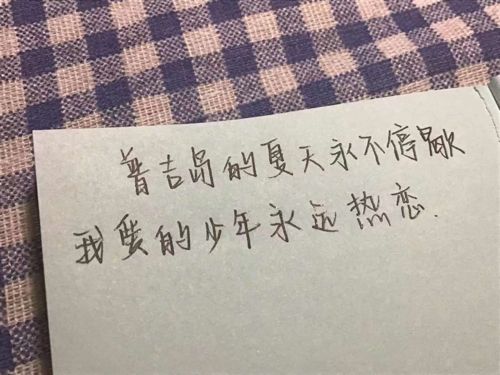 普吉岛的夏天永不停歇
我要的少年永远热恋.